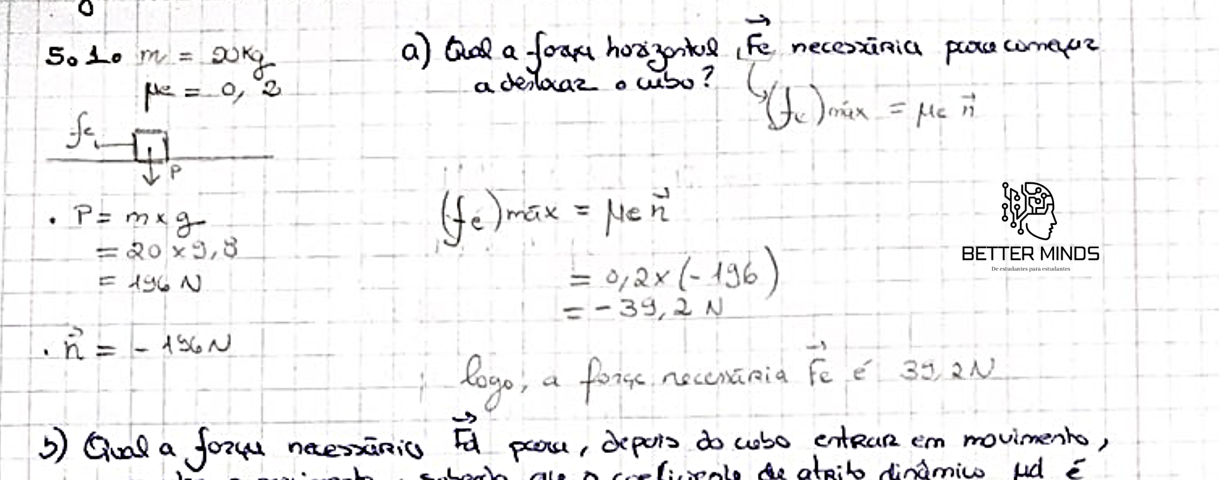 5.1. m = 20kg
μe = 0,2
a) Qual a força horizontal, Fe necessária para começar
a deslocar o cubo?
(fe)máx = μe n
fe
P
. P = m x g
= 20 x 9,8
= 196 N
. n = - 196N
(fe)máx = μe n
= 0,2x (-196)
= - 39,2 N
logo, a força necessária Fe é 39,2N
BETTER MINDS
De estudantes para estudantes
b) Qual a força necessária Fd para, depois do cubo entrar em movimento,
o movimento, sabendo que o coeficiente de atrito dinâmico μd é